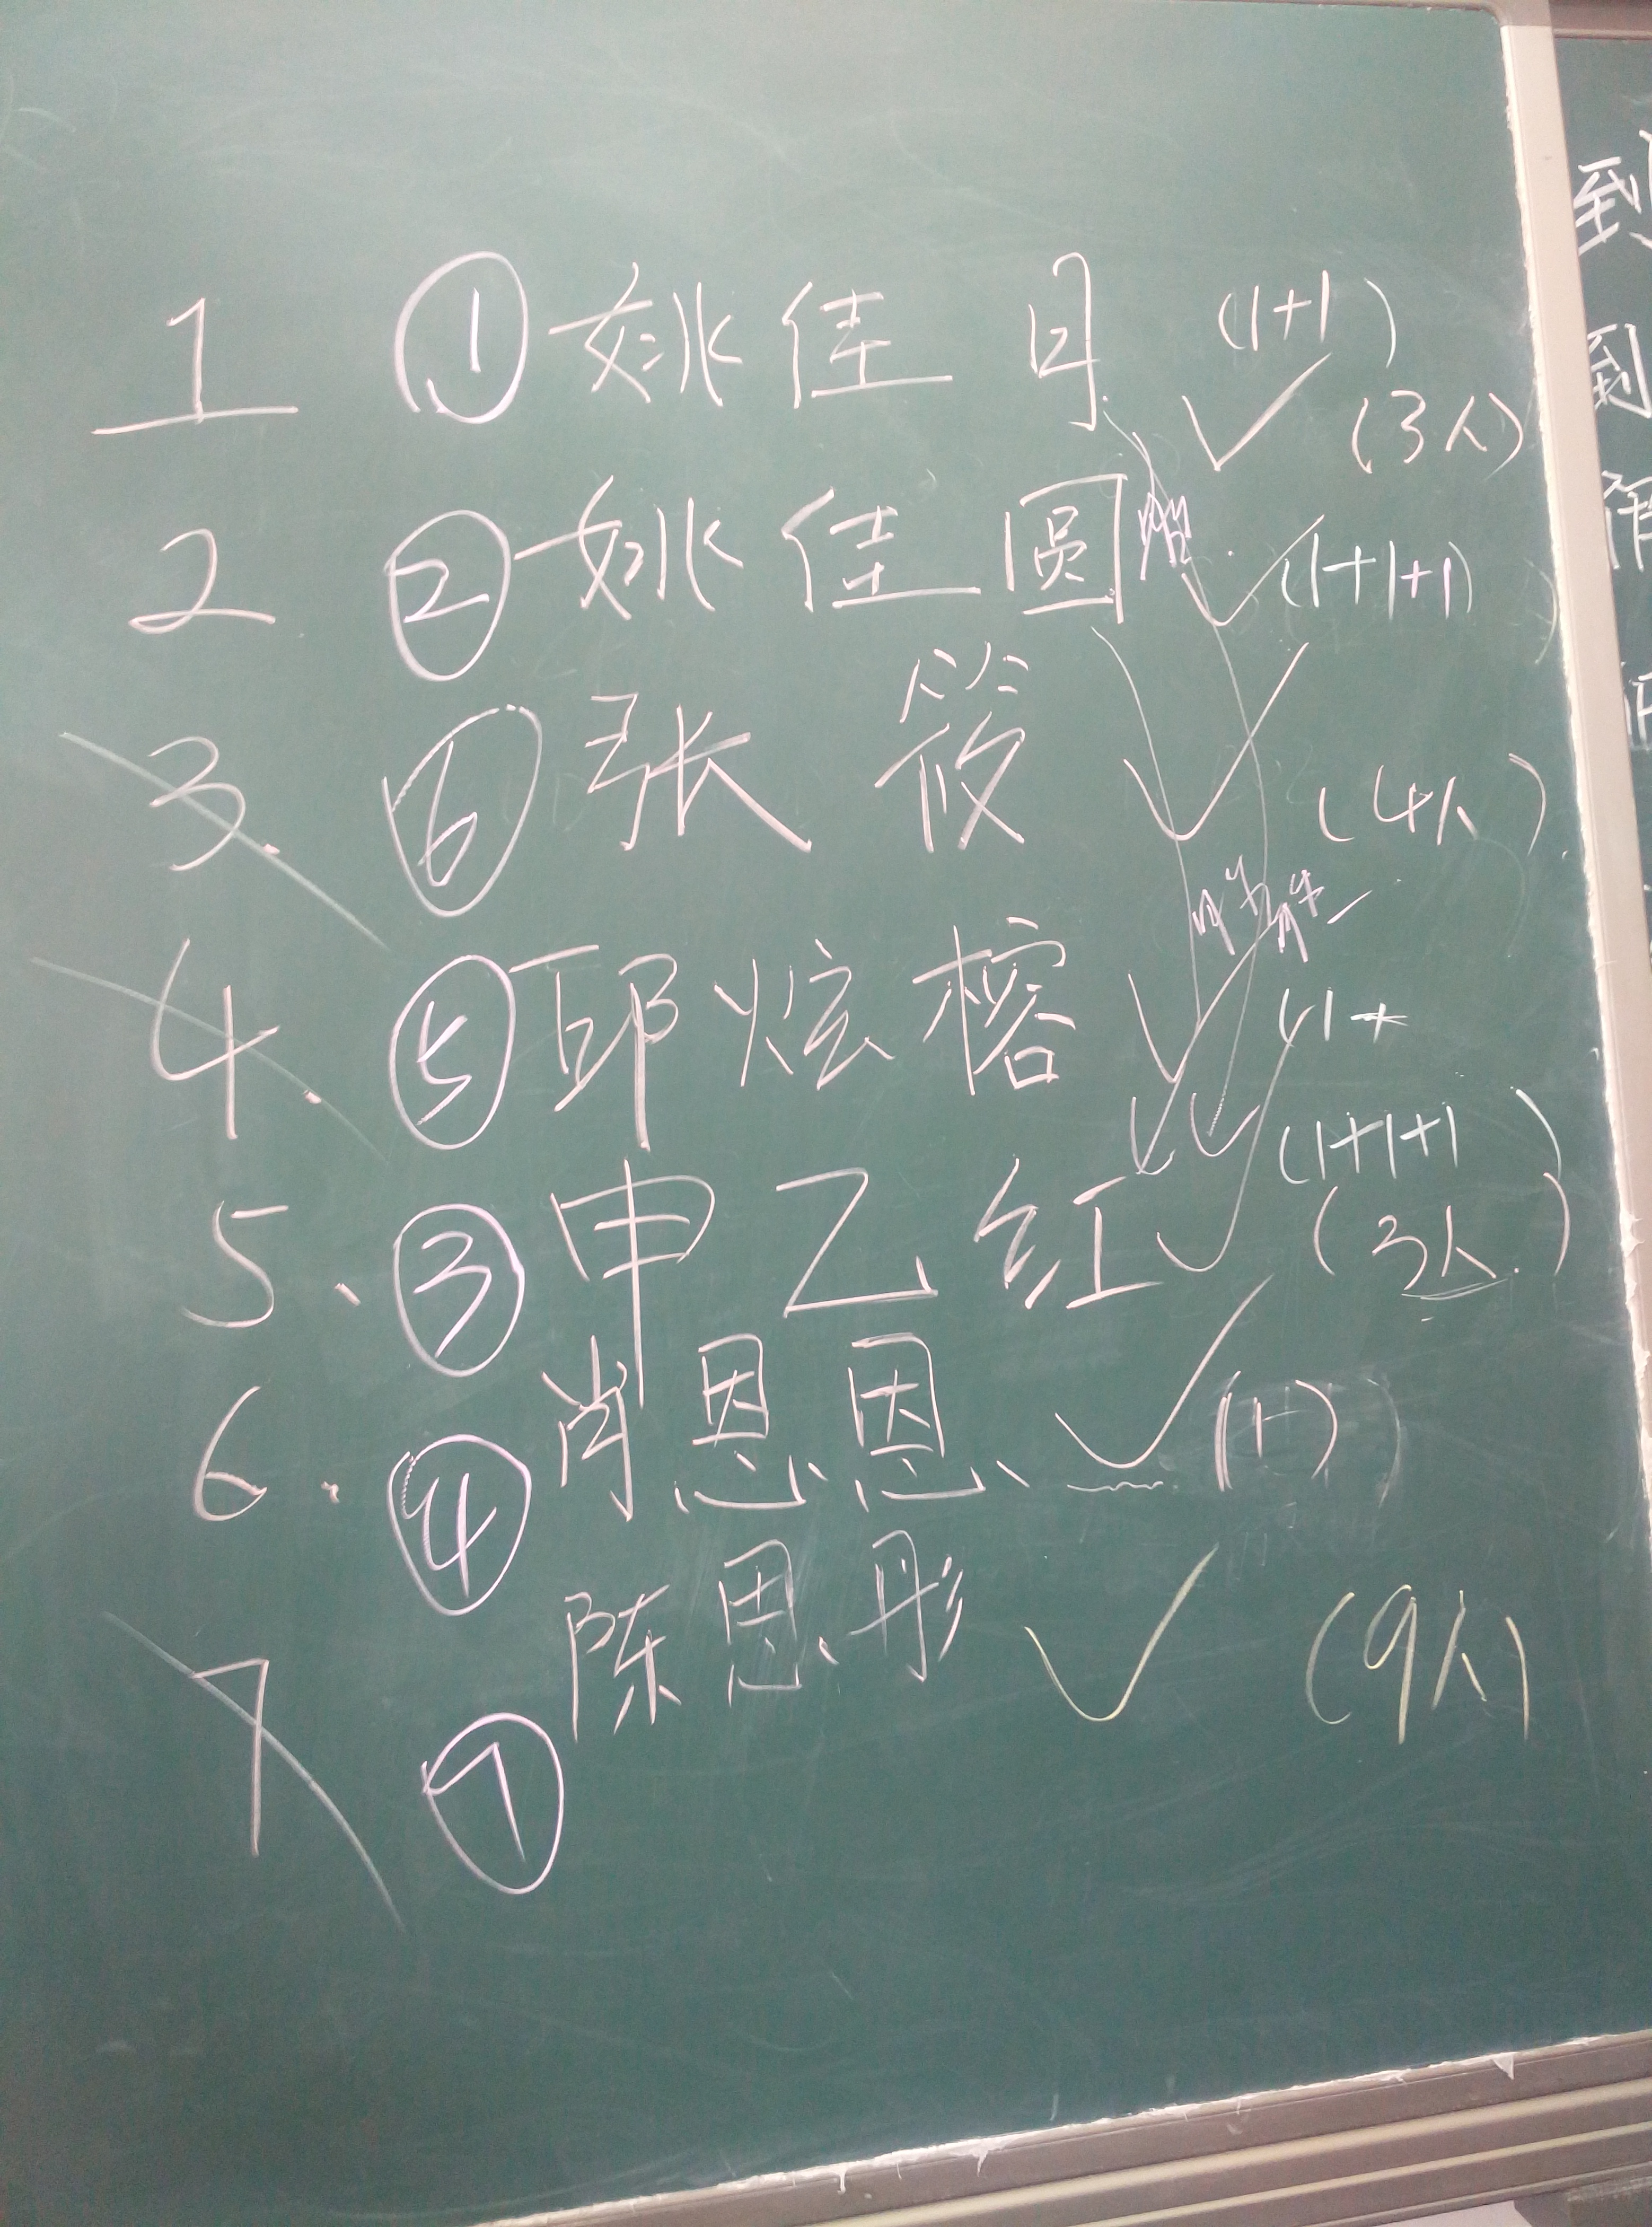 1 ① 姚佳月 (1+1)
✓ (3人)
2 ② 姚佳圆 ✓ (1+1+1)
3. ⑥ 张筱 ✓ (4人)
4. ⑤ 邱炫榕 ✓ (1+
(1+1+1
5、③ 申乙红 ✓ (3人)
6. ④ 肖恩恩 ✓ (1)
7 ⑦ 陈思彤 ✓ (9人)
到
到